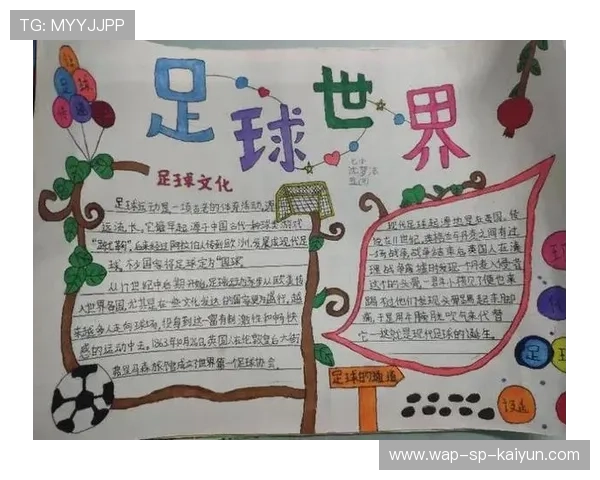 TG: MYYJJPP
足球世界
足球文化
足球运动是一项古老的体育活动,源
远流长。它最早起源于中国古代一种球类游戏
“蹴鞠”,后来经过阿拉伯人传到欧洲,发展成现代足
球。不少国家将足球定为“国球”。
从17世纪中后期开始,足球运动逐步从欧美传
入世界各国,尤其是在一些文化发达的国家更为盛行。越
来越多人走向球场,投身到这一富有刺激性和畅快
感的运动中去。1863年10月26日,英国人在伦敦皇后大街
弗里马森旅馆成立了世界第一个足球协会。
现代足球起源地是在英国。传
说在11世纪,英格兰与丹麦之间有过
一场战争,战争结束后英国人在清
理战争废墟时发现一个丹麦入侵者
这个的头骨
于是用牛膀胱吹气来代替
它——这就是现代足球的诞生。
足球的通道
足
www.wap-sp-kaiyun.com